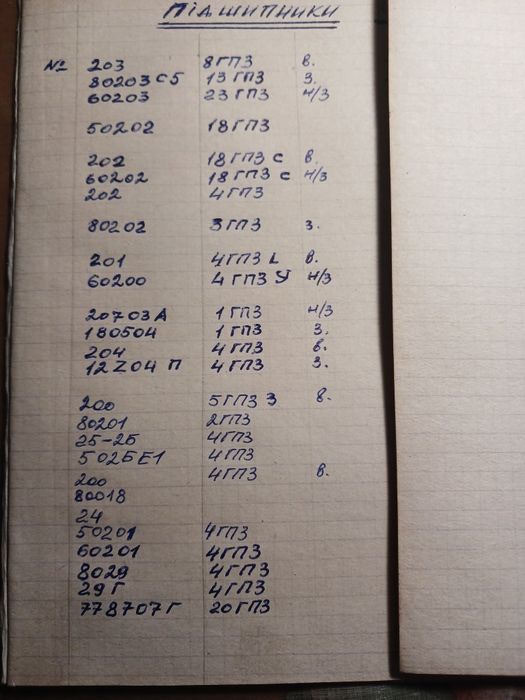 ПІДШИПНИКИ
№ 203 8ГПЗ в.
80203 С5 13ГПЗ З.
60203 23ГПЗ Н/З
50202 18ГПЗ
202 18ГПЗ С в.
60202 18ГПЗ С Н/З
202 4ГПЗ
80202 3ГПЗ З.
201 4ГПЗ L в.
60200 4ГПЗ У Н/З
20703А 1ГПЗ Н/З
180504 1ГПЗ З.
204 4ГПЗ в.
12Z04 П 4ГПЗ З.
200 5ГПЗ З в.
80201 2ГПЗ
25-2Б 4ГПЗ
502БЕ1 4ГПЗ
200 4ГПЗ в.
80018
24
50201 4ГПЗ
60201 4ГПЗ
8029 4ГПЗ
29Г 4ГПЗ
778707Г 20ГПЗ